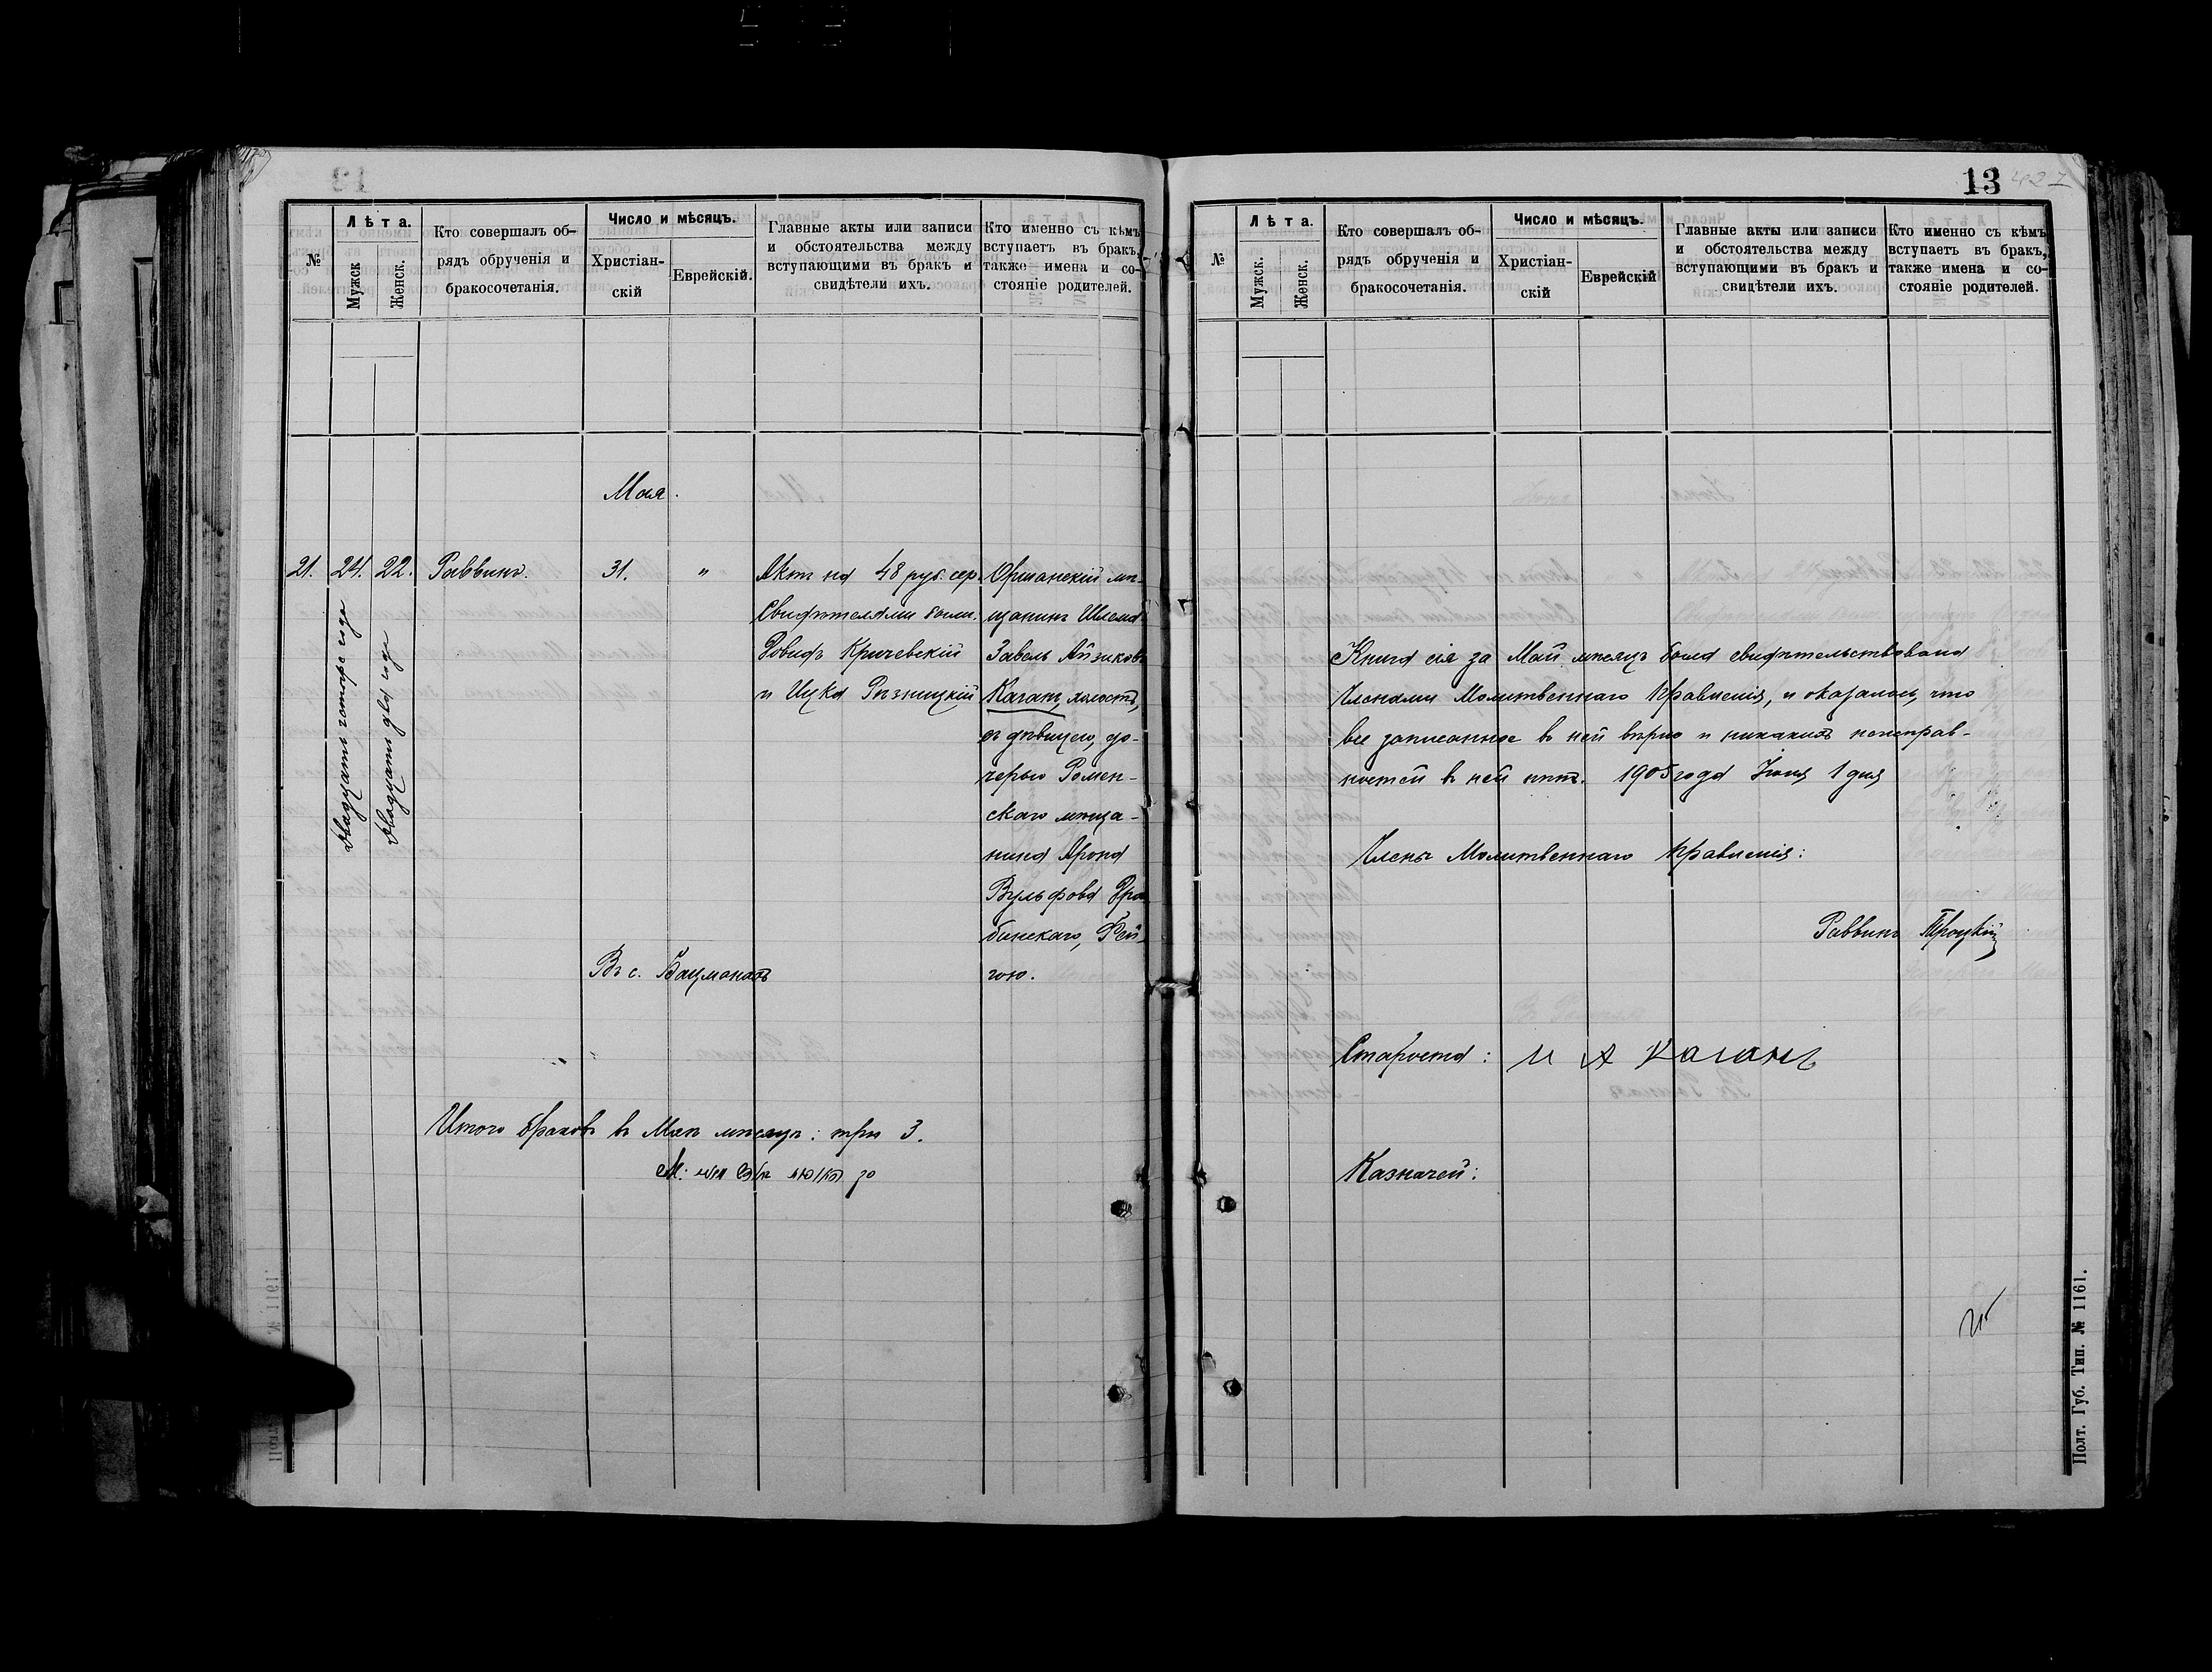 №
Лѣта.
Мужск
Женск.
Кто совершалъ об-
рядъ обрученія и
бракосочетанія.
Число и мѣсяцъ.
Христіан-
скій
Еврейскій.
Главные акты или записи
и обстоятельства между
вступающими въ бракъ и
свидѣтели ихъ.
Кто именно съ кѣмъ
вступаетъ въ бракъ,
также имена и со-
стояніе родителей.
Мая.
21. 24. 22. Раввинъ. 31. "
двадцать четыре года
двадцать два года
Актъ на 48 руб. сер.
Свидѣтелями были.
Довидъ Кричевскій
и Ицка Рѣзницкій
Оршанскій мѣ-
щанинъ Шлема
Завель Айзиковъ
Каганъ, холостъ,
съ дѣвицею, до-
черью Ромен-
скаго мѣща-
нина Арона
Вульфова
бинскаго, Фей-
гою.
Въ с. Бацманахъ
Итого браковъ въ Маѣ мѣсяцѣ: три 3.
13
№
Лѣта.
Мужск.
Женск.
Кто совершалъ об-
рядъ обрученія и
бракосочетанія.
Число и мѣсяцъ.
Христіан-
скій
Еврейскій
Главные акты или записи
и обстоятельства между
вступающими въ бракъ и
свидѣтели ихъ.
Кто именно съ кѣмъ
вступаетъ въ бракъ,
также имена и со-
стояніе родителей.
Книга сія за Май мѣсяцъ была свидѣтельствована
Членами Молитвеннаго Правленія, и оказалось, что
все записанное въ ней вѣрно и никакихъ неисправ-
ностей въ ней нѣтъ. 1905 года Іюня 1 дня
Члены Молитвеннаго Правленія:
Раввинъ Троцкій
Староста: И А Каганъ
Казначей:
Полт. Губ. Тип. № 1161.